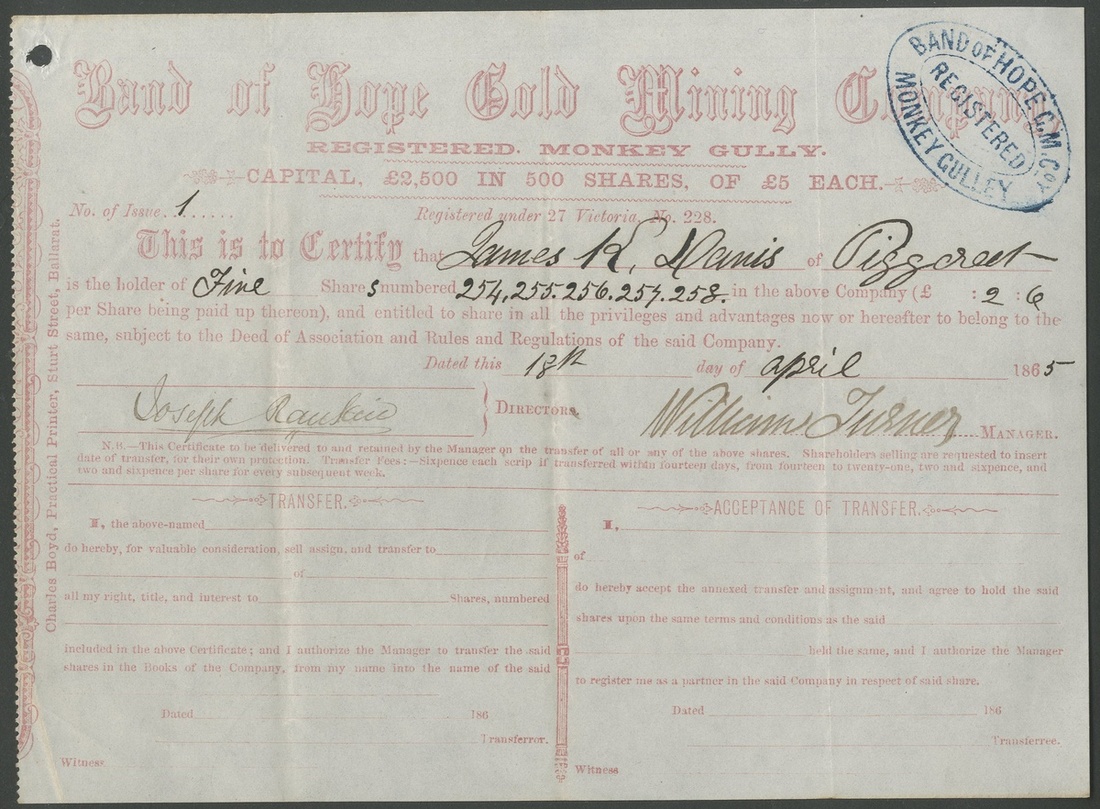 Band of Hope Gold Mining Company
BAND OF HOPE G.M. Coy
REGISTERED
MONKEY GULLEY
REGISTERED. MONKEY GULLY.
CAPITAL, £2,500 IN 500 SHARES, OF £5 EACH.
No. of Issue. 1......
Registered under 27 Victoria, No. 228.
This is to Certify that James K. Davis of
is the holder of Five Shares numbered 254, 255. 256. 257. 258. in the above Company (£ : 2 : 6
per Share being paid up thereon), and entitled to share in all the privileges and advantages now or hereafter to belong to the
same, subject to the Deed of Association and Rules and Regulations of the said Company.
Dated this 18th day of april 1865
Joseph Rankin } DIRECTORS. William Turner MANAGER.
N.B.—This Certificate to be delivered to and retained by the Manager on the transfer of all or any of the above shares. Shareholders selling are requested to insert
date of transfer, for their own protection. Transfer Fees:—Sixpence each scrip if transferred within fourteen days, from fourteen to twenty-one, two and sixpence, and
two and sixpence per share for every subsequent week.
TRANSFER.
I, the above-named
do hereby, for valuable consideration, sell assign, and transfer to
of
all my right, title, and interest to Shares, numbered
included in the above Certificate; and I authorize the Manager to transfer the said
shares in the Books of the Company, from my name into the name of the said
Dated 186
Transferror.
Witness
ACCEPTANCE OF TRANSFER.
I,
of
do hereby accept the annexed transfer and assignment, and agree to hold the said
shares upon the same terms and conditions as the said
held the same, and I authorize the Manager
to register me as a partner in the said Company in respect of said share.
Dated 186
Transferree.
Witness
Charles Boyd, Practical Printer, Sturt Street, Ballarat.